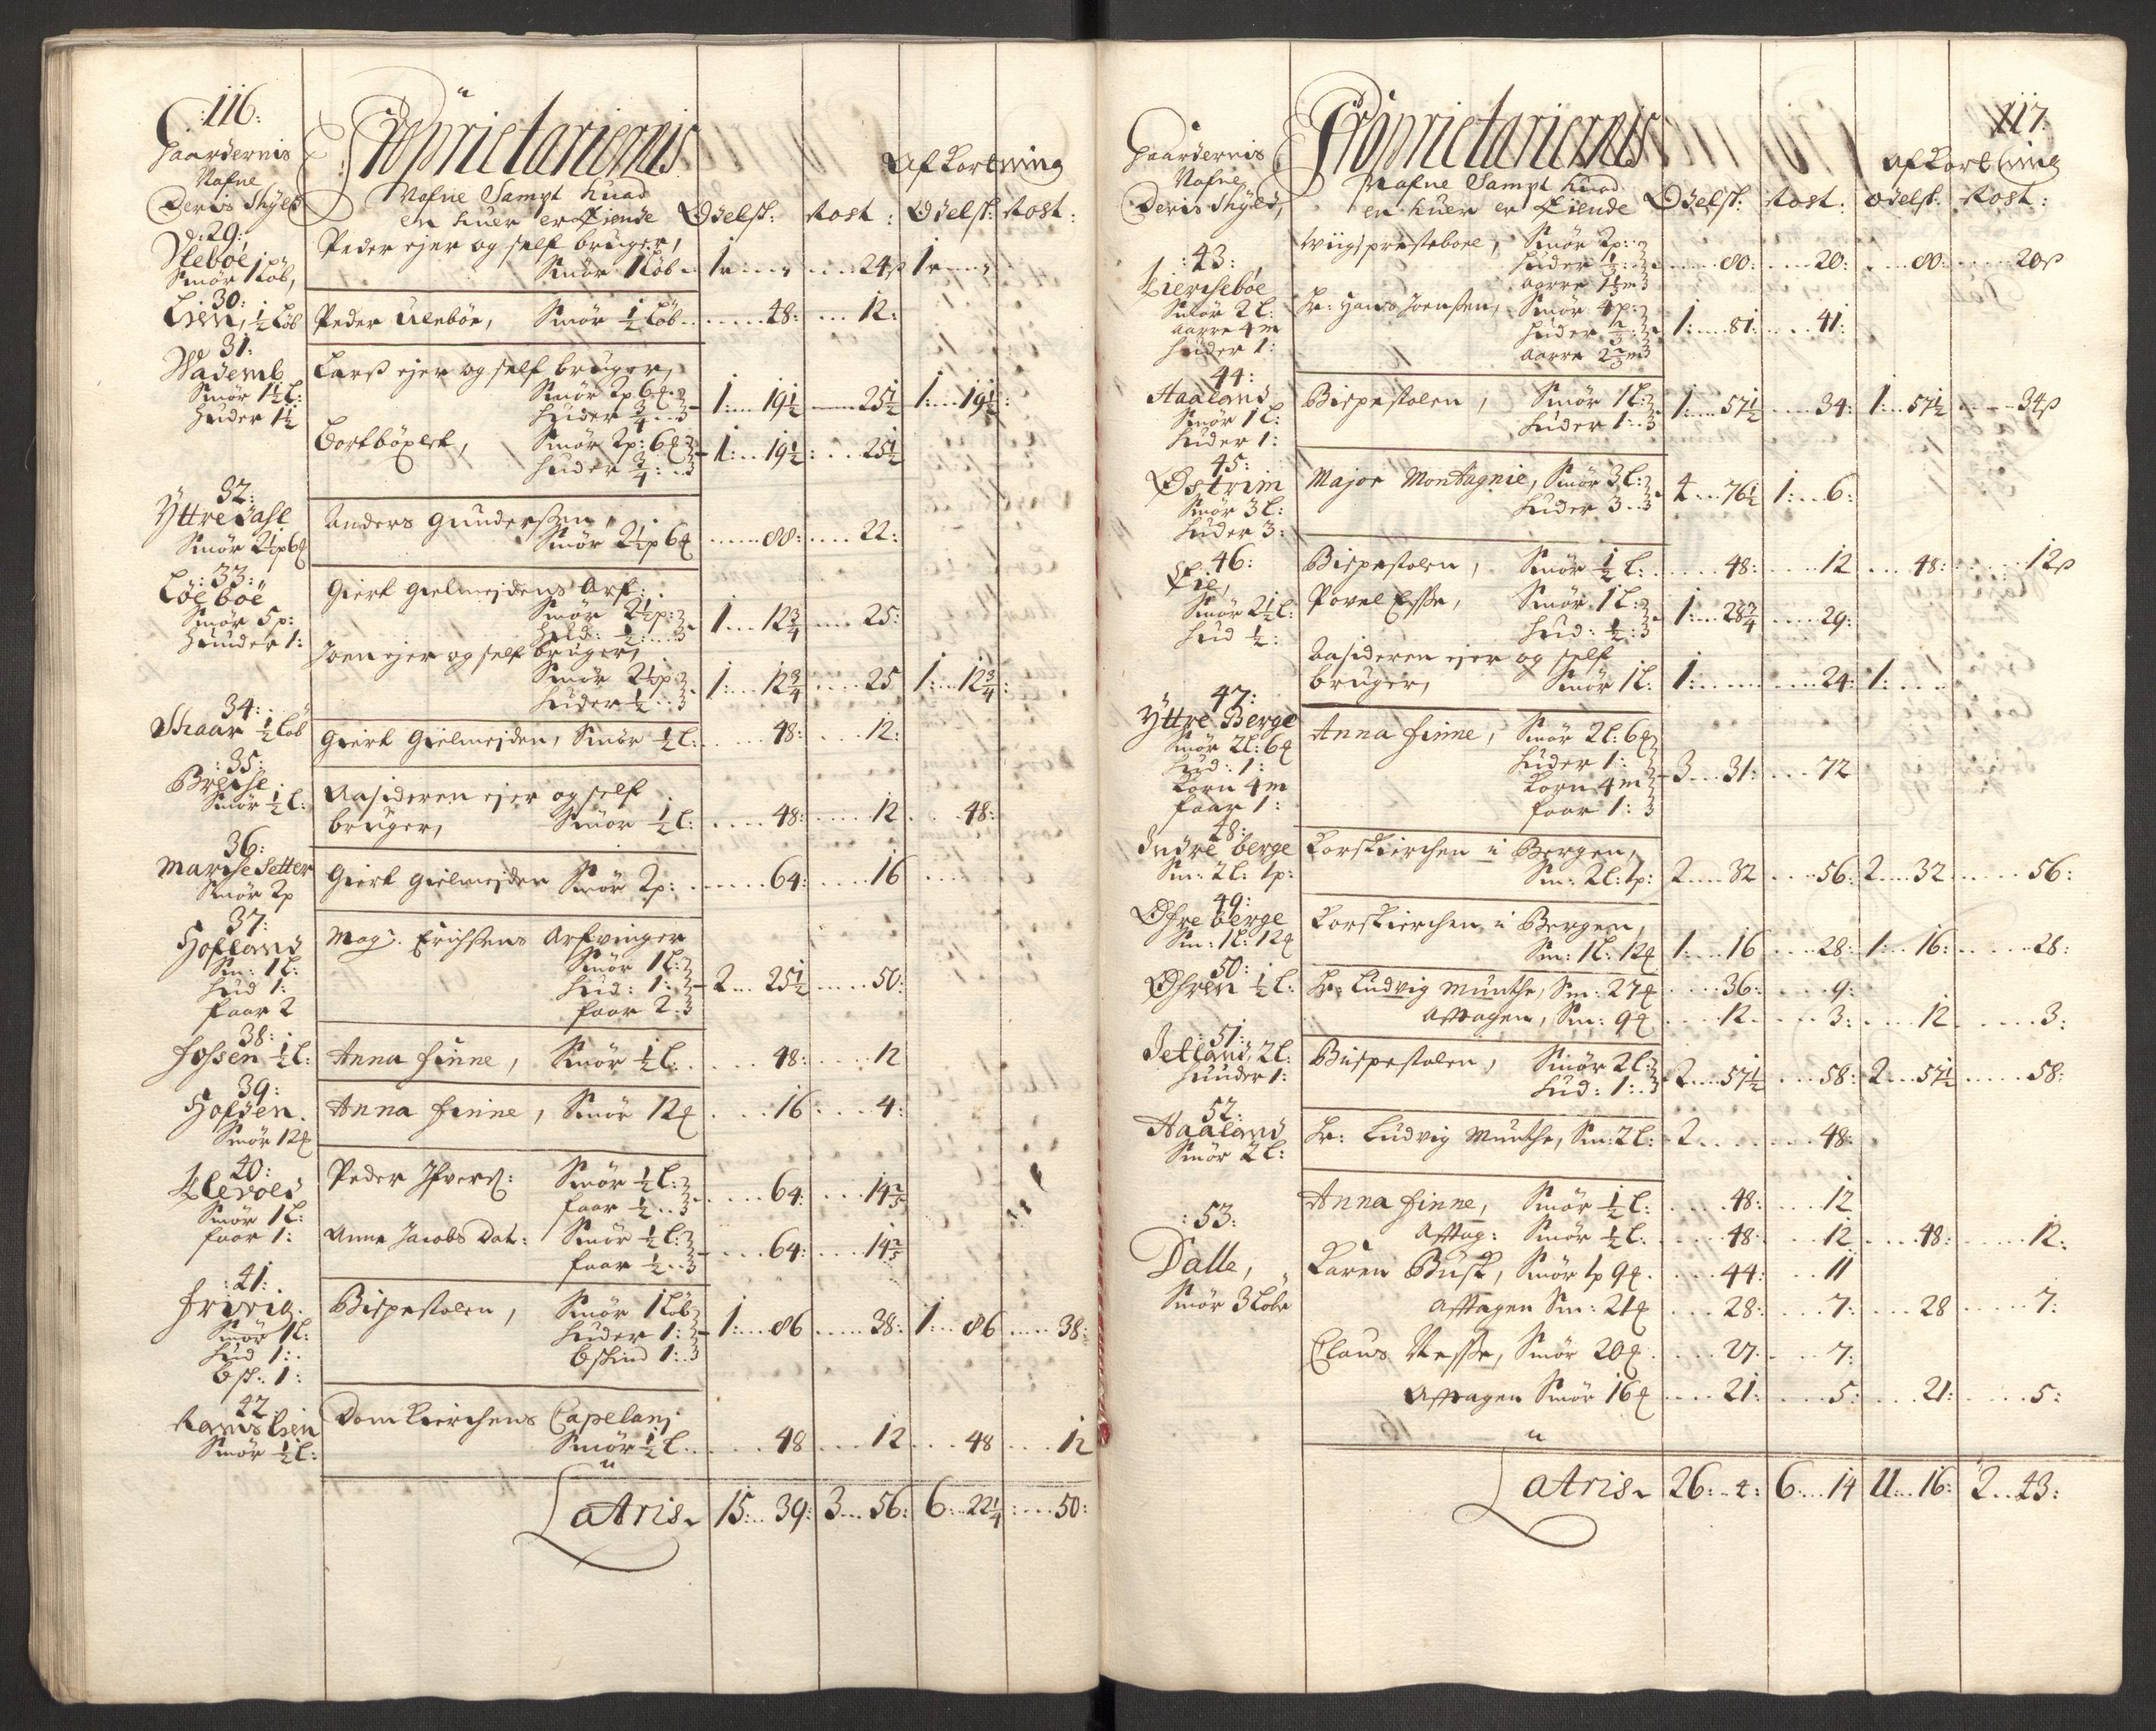 116.
Gaardernis
Nafne
Deris Skyld
Proprietariernis
Nafne Sampt huad
en huer er Eiende
Odelsk: Rost: Afkortning Odelsk: Rost:
29:
Uleböe
Smör 1 Löb,
Peder ejer og self bruger,
Smör 1 Löb.. 1r .... 24ß 1r
30:
Lien, ½ Löb
Peder Ulebön, Smör ½ Löb.. 48: 12:
31:
Wademb
Smör 1½ l:
Huder 1½
Larß ejer og self bruger,
Smör 2p 6
Huder ¾ 1: 19½ 25½ 1: 19½:
Smör 2p: 6
Huder ¾ 1: 19½: 25½
32:
Yttre dahl
Smör 2½p 6
Anders Gunderßen,
Smör 2½p 6 88: 22:
33:
Löe böe
Smör 5p:
Huuder 1:
Giert Gielmejdens Arf:
Smör 2½p:
Hud: ½: 1 12¾ 25:
Joen ejer og self bruger,
Smör 2½p
Huder ½ 1: 12¾ 25 1: 12¾:
34:
Skaar ½ Löb
Giert Gielmejden, Smör ½ l: 48: 12:
35:
Smör ½ l:
Aasideren ejer og self
bruger, Smör ½ l: 48: 12 48:
36:
Marche Setter
Smör 2p
Giert Gielmejden Smör 2p: 64: 16
37:
Hofland
Sm: 1 l:
Hud 1:
faar 2
Mag: Erichßens Arfvinger
Smör 1 l:
Hud: 1:
faar 2. 2 25½ 50:
38:
Fossen ½ l:
Anna Finne, Smör ½ l: 48: 12
39:
Hofden.
Smör 12
Anna Finne, Smör 12 16 4:
40:
Klevold
Smör 1 l:
faar 1:
Peder Ifverß: Smör ½ l:
faar ½ 64: 14⅖
Anne Jacobs Dat: Smör ½ l:
faar ½ 64: 14⅖
41:
Smör 1 l:
Hud 1:
bsk: 1:
Bispestolen, Smör 1 Löb
Huder 1:
bskind 1: 1: 86 38: 1: 86 38:
42
Ramslien
Smör ½ l:
Domkierchens Capelani
Smör ½ l. 48 12 48 12
Latris 15: 39: 3 56: 6: 22¼: 50:
117.
Gaardernis
Nafne
Deris Skyld,
Proprietariernis
Nafne Sampt huad
en huer er Eiende
Odelsk: Rost: Afkortning odelsk: Rost:
43:
Kierheböe
Smör 2 l:
aarre 4 m
Huder 1:
Wiigs prestebole, Smör 2p:
Huder ⅓:
aarre 1⅓ m 80: 20: 80: 20ß
Hr: Hans Joenßen, Smör 4p:
Huder ⅔:
aarre 2⅔ m 1: 81 41:
44:
Haaland
Smör 1 l:
Huder 1:
Bispestolen, Smör 1 l:
Huder 1: 1: 57½ 34: 1: 57½ 34ß
45:
Østrim
Smör 3 l:
Huder 3:
Major Montagnie, Smör 3 l:
Huder 3 4 76½ 1: 6:
46:
Smör 2½ l:
Hud ½:
Bispestolen, Smör ½ l: 48: 12 48: 12ß
Povel Esße, Smör 1 l:
Hud: ½: 1: 28¾ 29:
Aasideren ejer og self
bruger, Smör 1 l: 1: 24: 1:
47:
Yttre Berge
Smör 2 l: 6
Hud: 1:
Korn 4 m
faar 1:
Anna Finne, Smör 2 l: 6
Huder 1:
Korn 4 m
faar 1: 3 31: 72
48:
Indre berge
Sm: 2 l: 1p:
Korskierchen i Bergen,
Sm: 2 l: 1p: 2 32 56: 2 32 56:
49:
Øfre berge
Sm: 1 l: 12
Korskierchen i Bergen,
Sm: 1 l: 12 1: 16 28: 1: 16: 28:
50:
Øfren ½ l:
Hr: Ludvig Munthe, Sm: 27 36: 9:
Afftagen, Sm: 9 12 3: 12 3:
51:
Jetland, 2 l:
Huuder 1:
Bispestolen, Smör 2 l:
Hud: 1: 2 57½ 58: 2 57½ 58:
52:
Haaland
Smör 2 l:
Hr: Ludvig Munthe, Sm: 2 l: 2 48:
53:
Dalle,
Smör 3 Löbe
Anna Finne, Smör ½ l: 48: 12
Afftag: Smör ½ l. 48: 12 48: 12:
Karen Busk, Smör 1p 9 44: 11
Afftagen Sm: 21 28: 7: 28 7:
Claus Neßße, Smör 20 27 7:
Afftagen Smör 16 21: 5: 21: 5:
Latris 26: 4: 6 14 11: 16: 2 43: